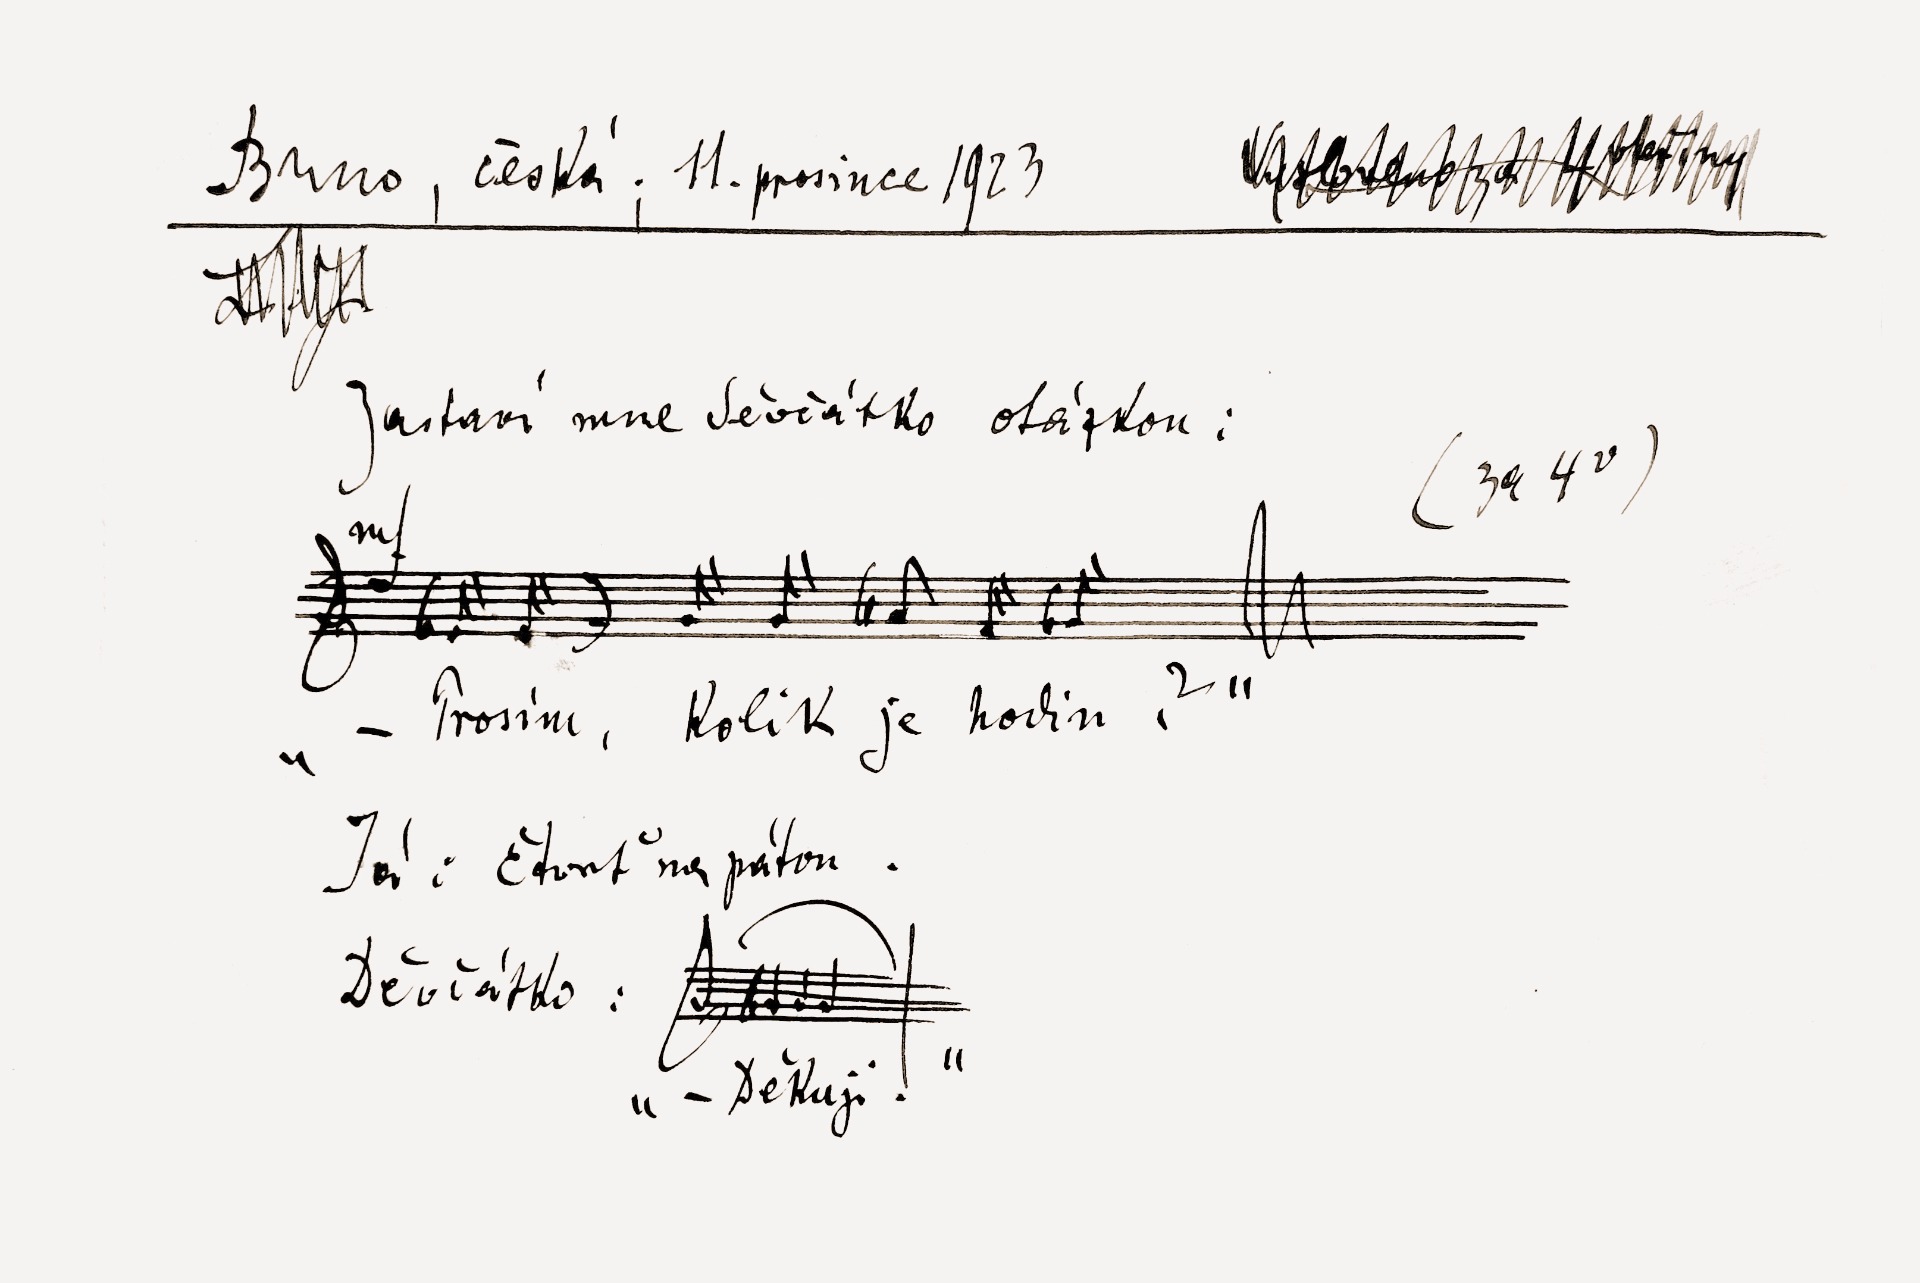 Brno, česká; 11. prosince 1923
Zastaví mne děvčátko otázkou:
(za 4 v)
mf
„ – Prosím, kolik je hodin?“
Já: čtvrť na pátou.
Děvčátko:
„ – Děkuji.“